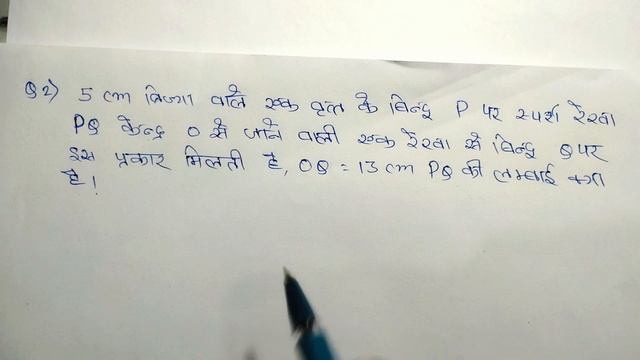 Q2) 5 cm त्रिज्या वाले एक वृत्त के बिन्दु P पर स्पर्श रेखा
PQ केन्द्र O से जाने वाली एक रेखा से बिन्दु Q पर
इस प्रकार मिलती है, OQ = 13 cm PQ की लम्बाई क्या
है।